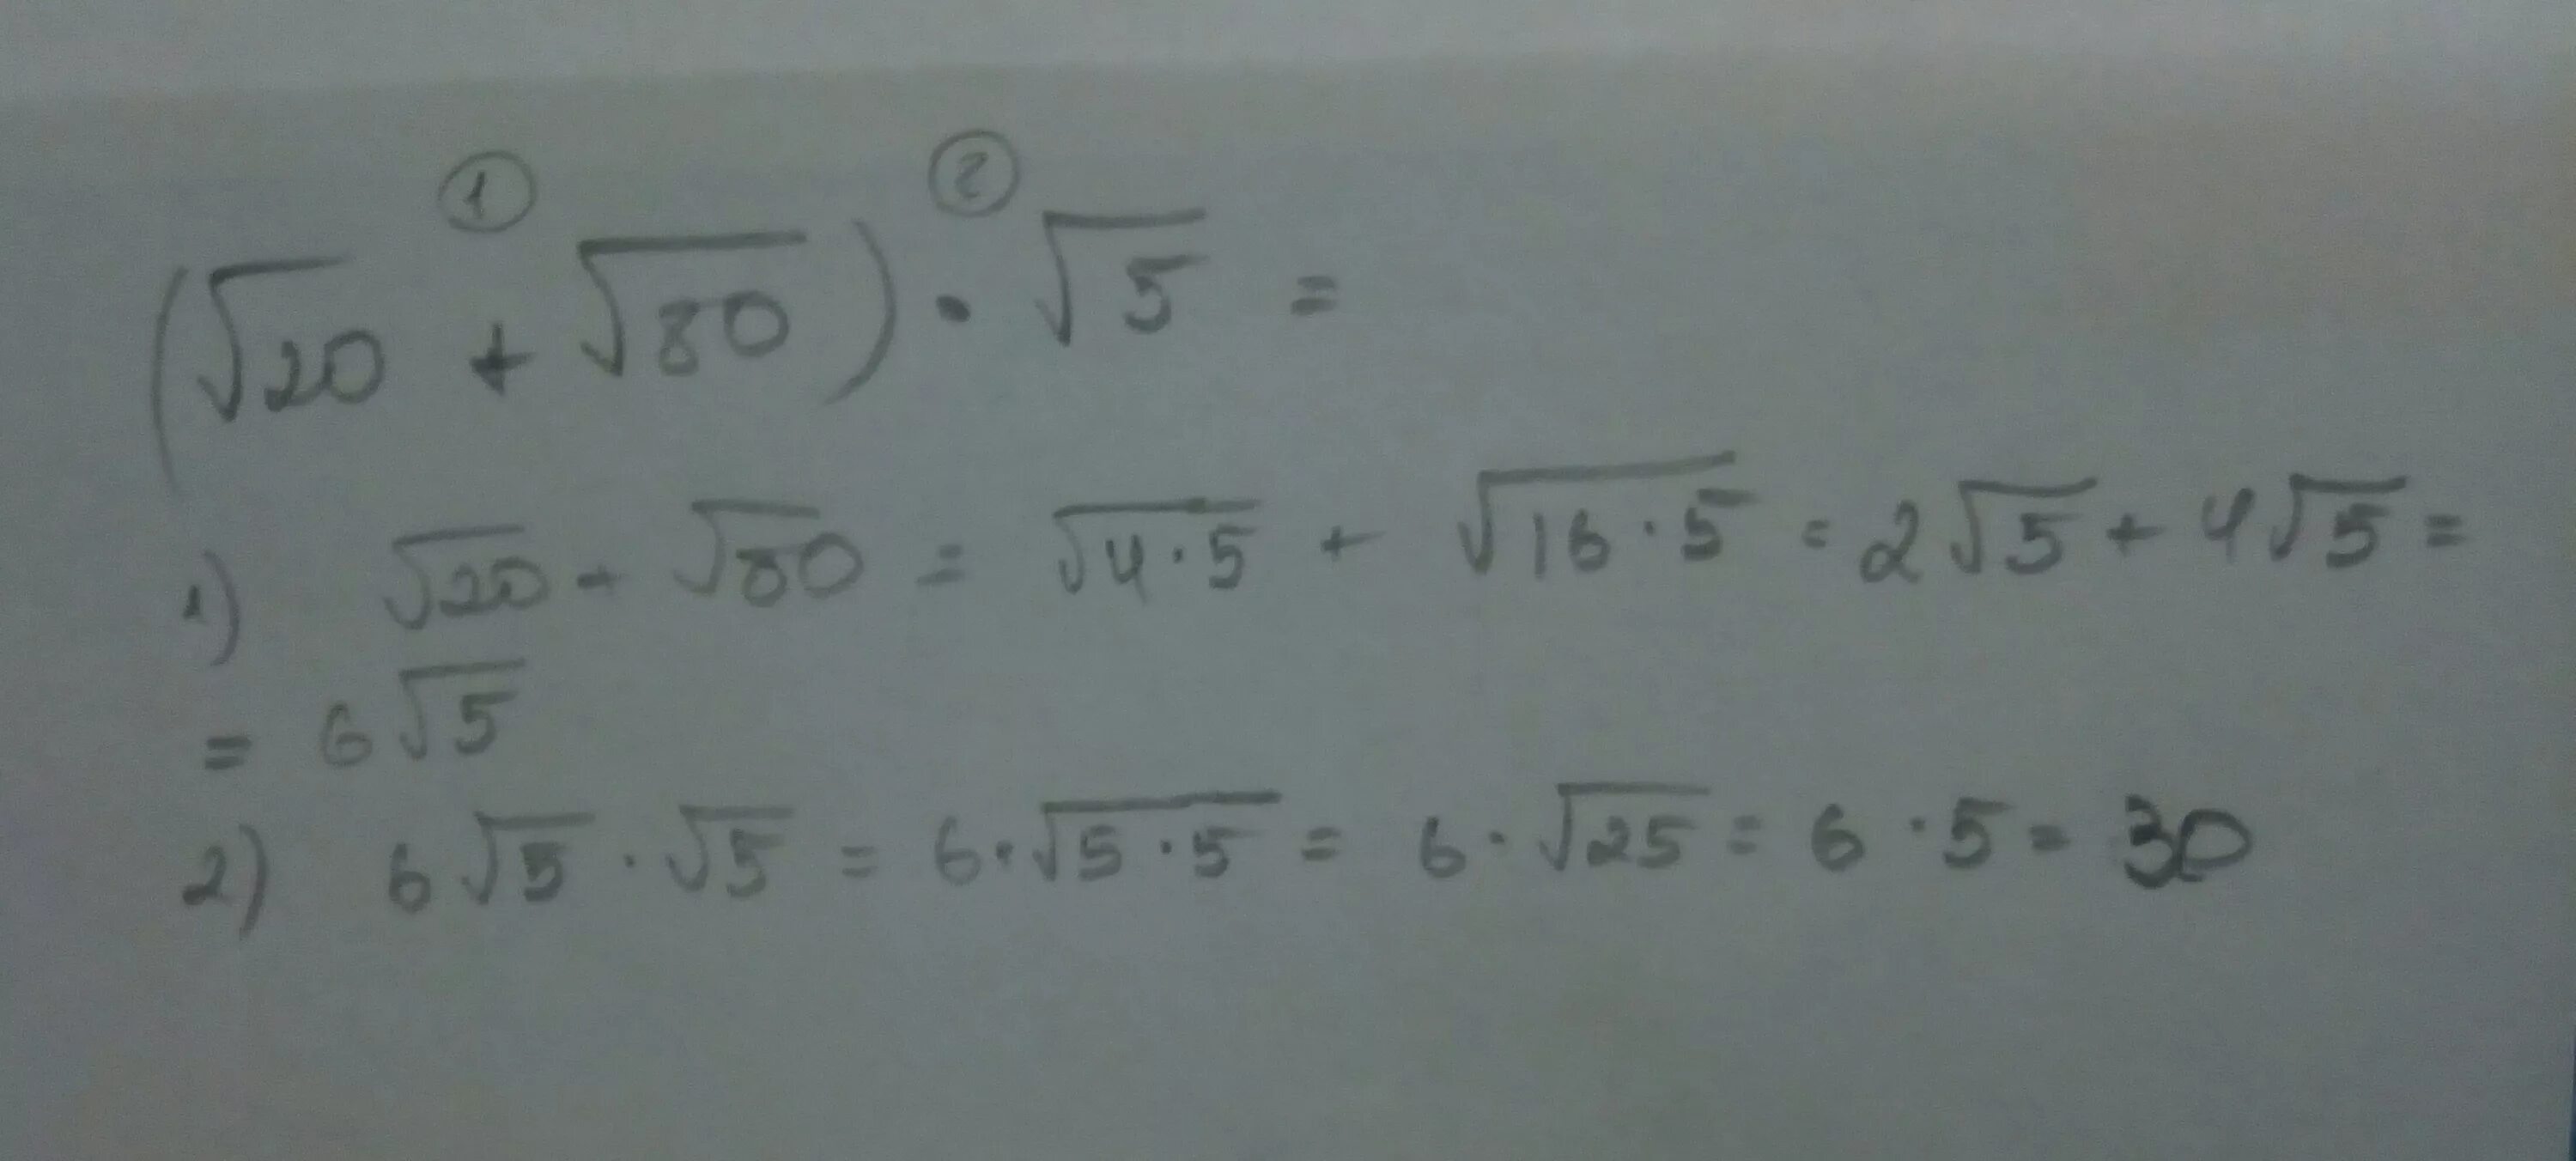 ① ②
(√20 + √80) · √5 =
1) √20 + √80 = √4·5 + √16·5 = 2√5 + 4√5 =
= 6√5
2) 6√5 · √5 = 6·√5·5 = 6·√25 = 6·5 = 30